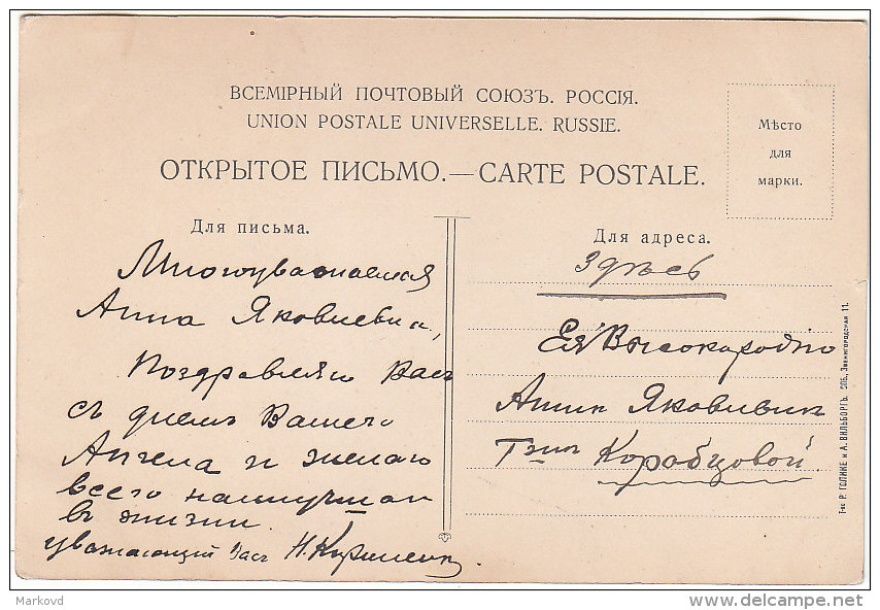 ВСЕМІРНЫЙ ПОЧТОВЫЙ СОЮЗЪ. РОССІЯ.
UNION POSTALE UNIVERSELLE. RUSSIE.
ОТКРЫТОЕ ПИСЬМО.—CARTE POSTALE.
Мѣсто
для
марки.
Для письма.
Многоуважаемая
Анна Яковлевна,
Поздравляю Васъ
съ днемъ Вашего
Ангела и желаю
всего наилучшаго
въ жизни
уважающій Васъ
Для адреса.
Здѣсь
Ея Высокородію
Аннѣ Яковлевнѣ
Г-жѣ Коробцовой
Т-во Р. ГОЛИКЕ и А. ВИЛЬБОРГЪ. СПБ., Звенигородская 11.
Markovd
delcampe.net